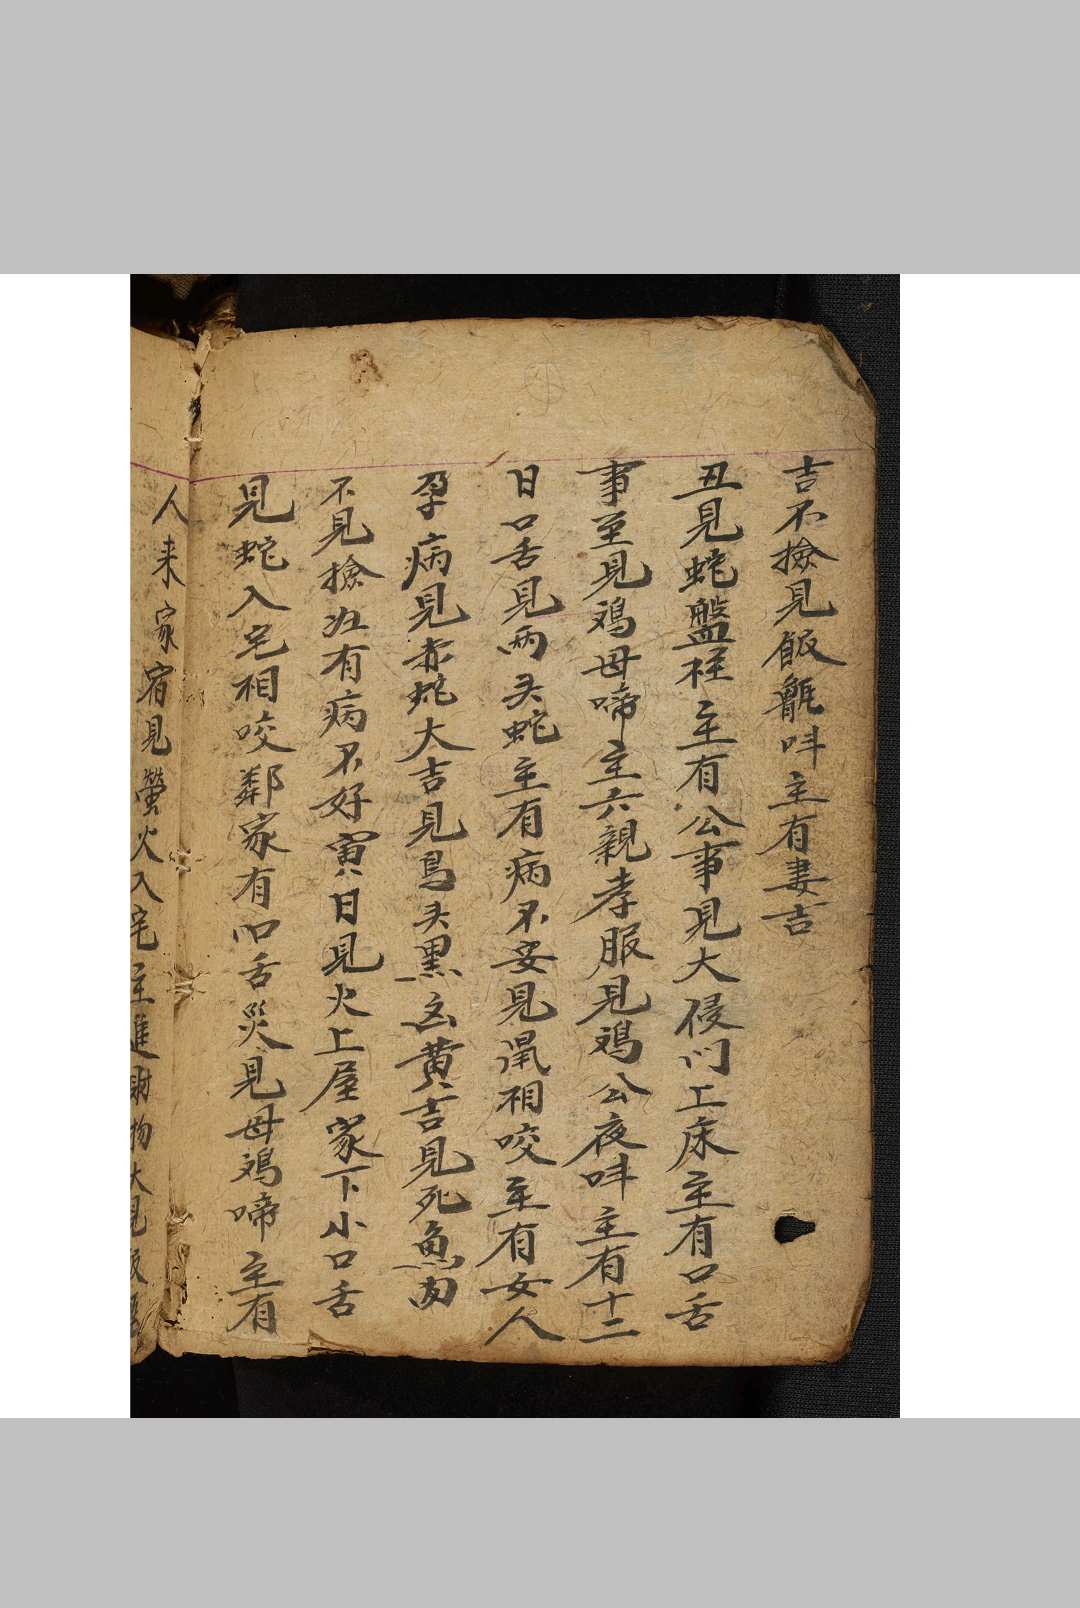 吉不撿見飯甑呌主有妻吉
丑見蛇盤柱主有公事見犬侵门上床主有口舌
事至見鸡母啼主六親孝服見鸡公夜呌主有十二
日口舌見两头蛇主有病不妥見鼠相咬主有女人
孕病見赤蛇大吉見鳥头黑凶黄吉見死魚凶
不見撿有病不好寅日見火上屋家下小口舌
見蛇入宅相咬鄰家有口舌災見母鸡啼主有
人来家宿見螢火入宅主進財物大見